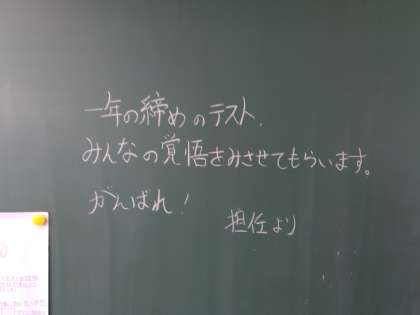 一年の締めのテスト、
みんなの覚悟をみさせてもらいます。
がんばれ!
担任より